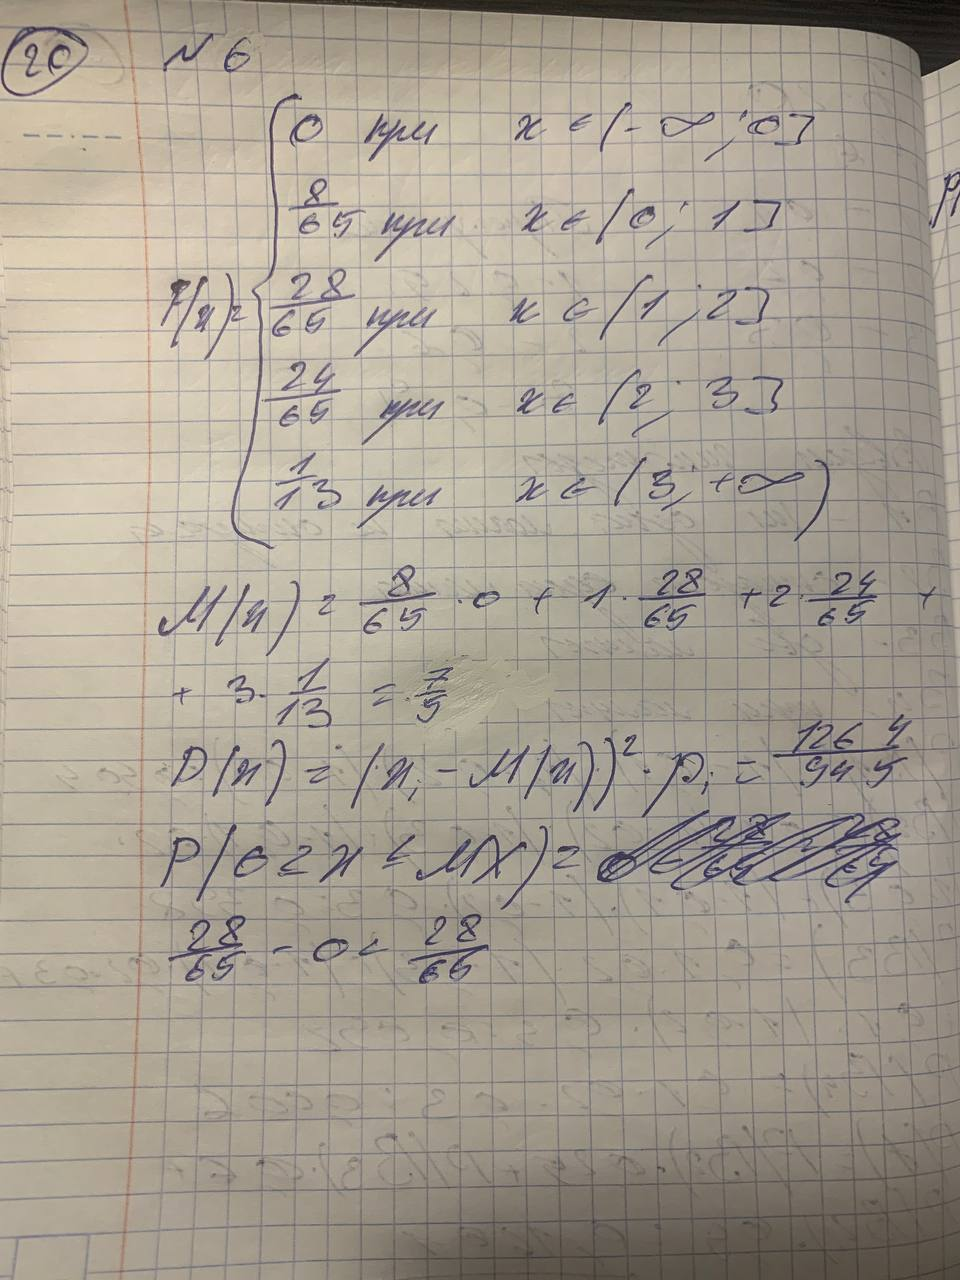 20 N 6
0 при x ∈ (-∞; 0]
8/65 при x ∈ (0; 1]
F(x) = 28/65 при x ∈ (1; 2]
24/65 при x ∈ (2; 3]
1/13 при x ∈ (3, +∞)
M(x) = 8/65 · 0 + 1 · 28/65 + 2 · 24/65 +
+ 3 · 1/13 = 7/5
D(x) = (xᵢ - M(x))² · pᵢ =
P(0 ≤ x < MX) =
28/65 - 0 = 28/65